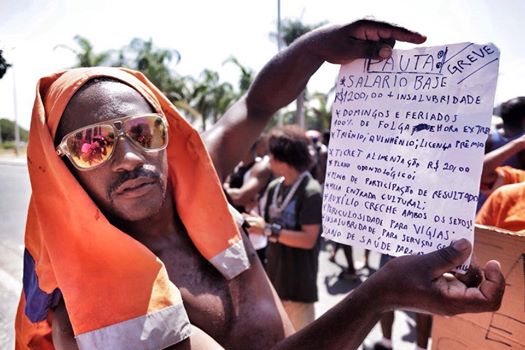 PAUTA%
GREVE
* SALÁRIO BASE
R$1200,00 + INSALUBRIDADE
* DOMINGOS E FERIADOS
100% DE FOLGA HORA EXTRA
* TRIÊNIO; QUINQUÊNIO; LICENÇA PRÊMIO
* TICKET ALIMENTAÇÃO R$20,00
* PLANO ODONTOLÓGICO;
* PLANO DE PARTICIPAÇÃO DE RESULTADO
* MEIA ENTRADA CULTURAL;
* AUXÍLIO CRECHE AMBOS OS SEXOS
* PERICULOSIDADE PARA VIGIAS
* INSALUBRIDADE PARA SERVIÇOS
PLANO DE SAÚDE PARA